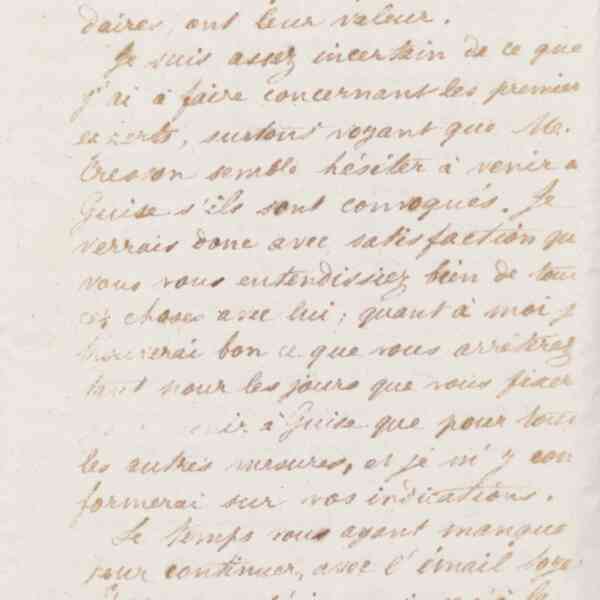 daires, ont leur valeur.
Je suis assez incertain de ce que
j'ai à faire concernant les premiers
experts, surtout voyant que M.
Cresson semble hésiter à venir à
Guise s'ils sont convoqués. Je
verrais donc avec satisfaction qu
vous vous entendissiez bien de tou
ces choses avec lui; quant à moi j
trouverai bon ce que vous arrêterez
tant pour les jours que vous fixer
enir à Guise que pour tout
les autres mesures, et je m'y con
formerai sur vos indications.
Le temps vous ayant manqué
pour continuer, avec l'émail